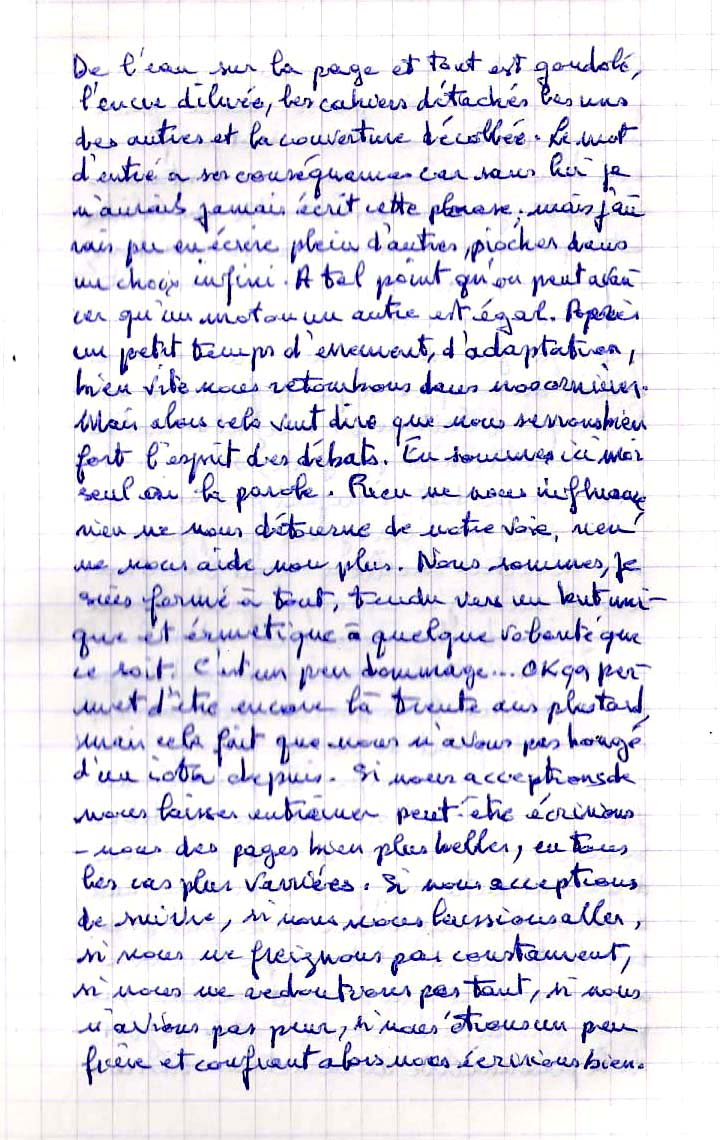 De l'eau sur la page et tout est gondolé,
l'encre diluée, les cahiers détachés les uns
des autres et la couverture décollée. Le mot
d'entrée a ses conséquences car sans lui je
n'aurais jamais écrit cette phrase, mais j'au
rais pu en écrire plein d'autres, piocher dans
un choix infini. A tel point qu'on peut avan
cer qu'un mot ou un autre est égal. Après
un petit temps d'errement, d'adaptation,
bien vite nous retombons dans nos ornières.
Mais alors cela veut dire que nous serrons bien
fort l'esprit des débats. En sommes ici moi
seul ai la parole. Rien ne nous influence
rien ne nous détourne de notre voie, rien
ne nous aide non plus. Nous sommes, je
suis fermé à tout, tendu vers un but uni-
que et érmétique à quelque volonté que
ce soit. C'est un peu dommage... OK ça per-
met d'être encore là trente ans plus tard,
mais cela fait que nous n'avons pas bougé
d'un iota depuis. Si nous acceptions de
nous laisser entraîner peut-être écririons
-nous des pages bien plus belles, en tous
les cas plus variées. Si nous acceptions
de suivre, si nous nous laissions aller,
si nous ne freignons pas constament,
si nous ne redoutions pas tant, si nous
n'avions pas peur, si nous étions un peu
fière et confiant alors nous écririons bien.